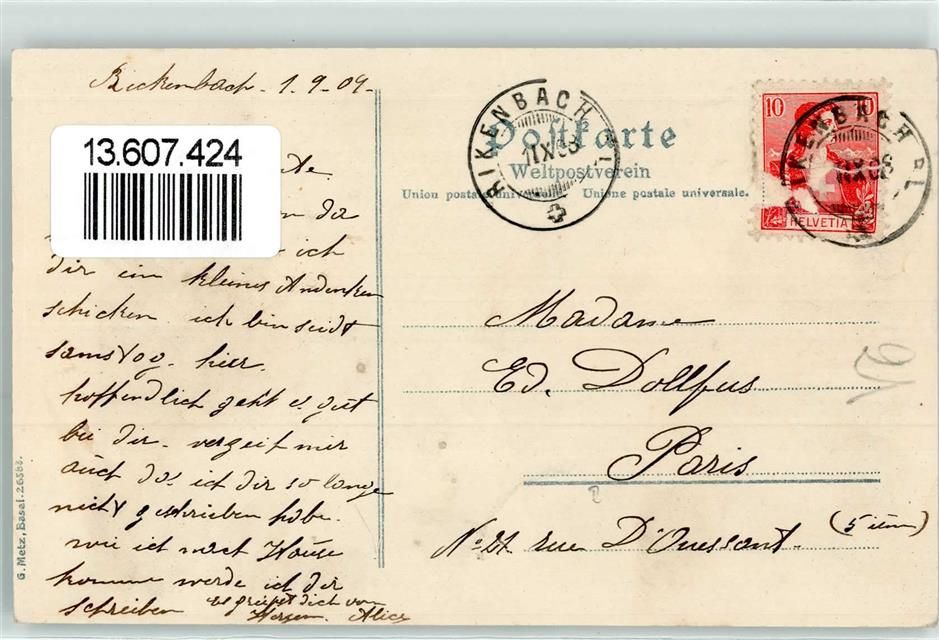 Rickenbach. 1.9-09-
13.607.424
da
ich
dir ein kleines Andenken
schicken. ich bin seidt
samstog. hier.
hoffendlich geht es güt
bei dir. verzeit mir
auch das ich dir so lange
nicht geschrieben habe.
wie ich nach Hause
komme werde ich dir
schreiben
Es grüsst dich von
Herzen. Alice
G. Metz, Basel. 26583.
RIKENBACH
Postkarte
Weltpostverein
Union postale universelle. Unione postale universale.
10 10
HELVETIA
RIKENBACH
Madame
Ed. Dollfus
Paris
No. 21 rue D'Ouessant. (15 ième)